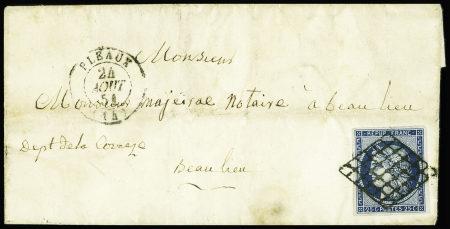 PLEAUX
24
AOUT
51
(14)
Monsieur
Monsieur majeirae Notaire à beaulieu
Dept de la Correze
Beaulieu
REPUB. FRANC.
25 C POSTES 25 C